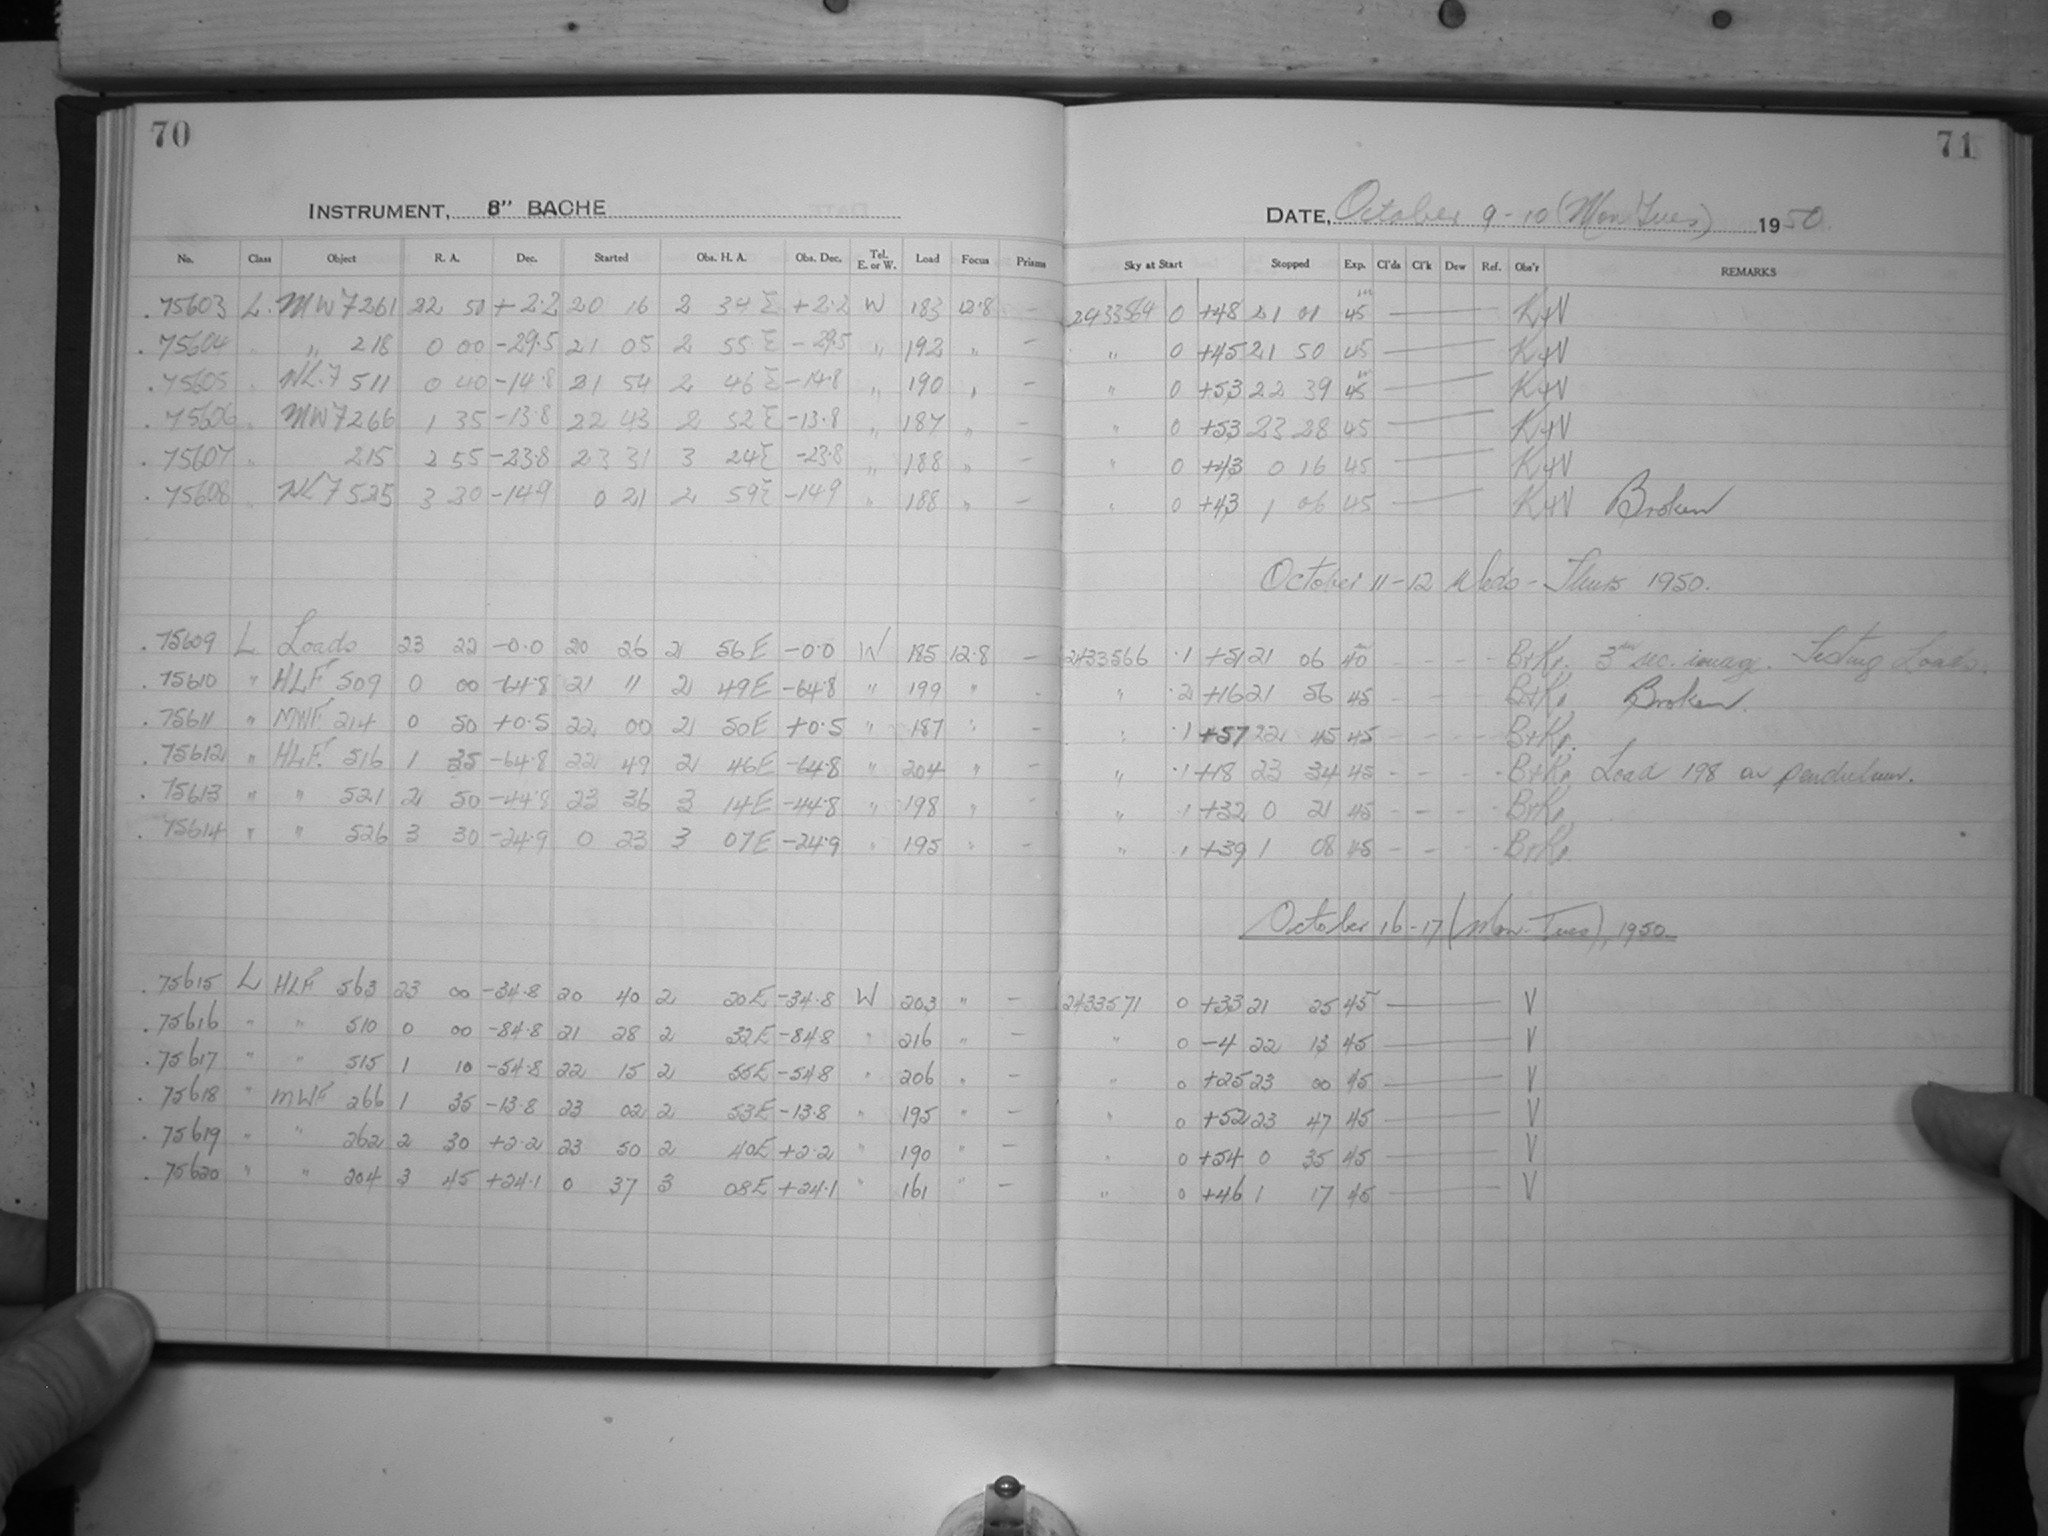 70
71
INSTRUMENT, 8" BACHE
DATE, October 9-10 (Mon Tues) 1950.
No. Class Object R. A. Dec. Started Obs. H. A. Obs. Dec. Tel. E. or W. Load Focus Prisms Sky at Start Stopped Exp. Cl'ds Cl'k Dew Ref. Obs'r REMARKS
75603 L. MWF 261 22 50 +2.2 20 16 2 34 E +2.2 W 183 12.8 — 2433564 0 +48 21 01 45m K+V
75604 " 218 0 00 -29.5 21 05 2 55 E -29.5 " 192 " — " 0 +45 21 50 45 K+V
75605 " 511 0 40 -14.8 21 54 2 46 E -14.8 " 190 " — " 0 +53 22 39 45m K+V
75606 " MWF 266 1 35 -13.8 22 43 2 52 E -13.8 " 187 " — " 0 +53 23 28 45 K+V
75607 " 215 2 55 -23.8 23 31 3 24 E -23.8 " 188 " — " 0 +43 0 16 45 K+V
75608 " 525 3 30 -14.9 0 21 2 59 E -14.9 " 188 " — " 0 +43 1 06 45 K+V Broken
October 11-12 Weds - Thurs 1950.
75609 L Loads 23 22 -0.0 20 26 2 56 E -0.0 W 185 12.8 — 2433566 .1 +51 21 06 40m - - - - B+Kr. 3 sec. image. Testing Loads.
75610 " HLF 509 0 00 -64.8 21 11 2 49 E -64.8 " 199 " - " .2 +16 21 56 45 - - - - B+Kr. Broken.
75611 " MWF 214 0 50 +0.5 22 00 2 50 E +0.5 " 187 " — " .1 +57 22 45 45 - - - - B+Kr.
75612 " HLF. 516 1 35 -64.8 22 49 2 46 E -64.8 " 204 " — " .1 +18 23 34 45 - - - - B+Kr. Load 198 on pendulum.
75613 " " 521 2 50 -44.8 23 36 3 14 E -44.8 " 198 " — " .1 +32 0 21 45 - - - - B+Kr.
75614 " " 526 3 30 -24.9 0 23 3 07 E -24.9 " 195 " — " .1 +39 1 08 45 - - - - B+Kr.
October 16-17 (Mon-Tues), 1950.
75615 L HLF 563 23 00 -34.8 20 40 2 20 E -34.8 W 203 " — 2433571 0 +33 21 25 45 V
75616 " " 510 0 00 -84.8 21 28 2 32 E -84.8 " 216 " — " 0 -4 22 13 45 V
75617 " " 515 1 10 -54.8 22 15 2 55 E -54.8 " 206 " — " 0 +25 23 00 45 V
75618 " MWF 266 1 35 -13.8 23 02 2 53 E -13.8 " 195 " — " 0 +52 23 47 45 V
75619 " " 262 2 30 +2.2 23 50 2 40 E +2.2 " 190 " — " 0 +54 0 35 45 V
75620 " " 204 3 45 +24.1 0 37 3 08 E +24.1 " 161 " — " 0 +46 1 17 45 V